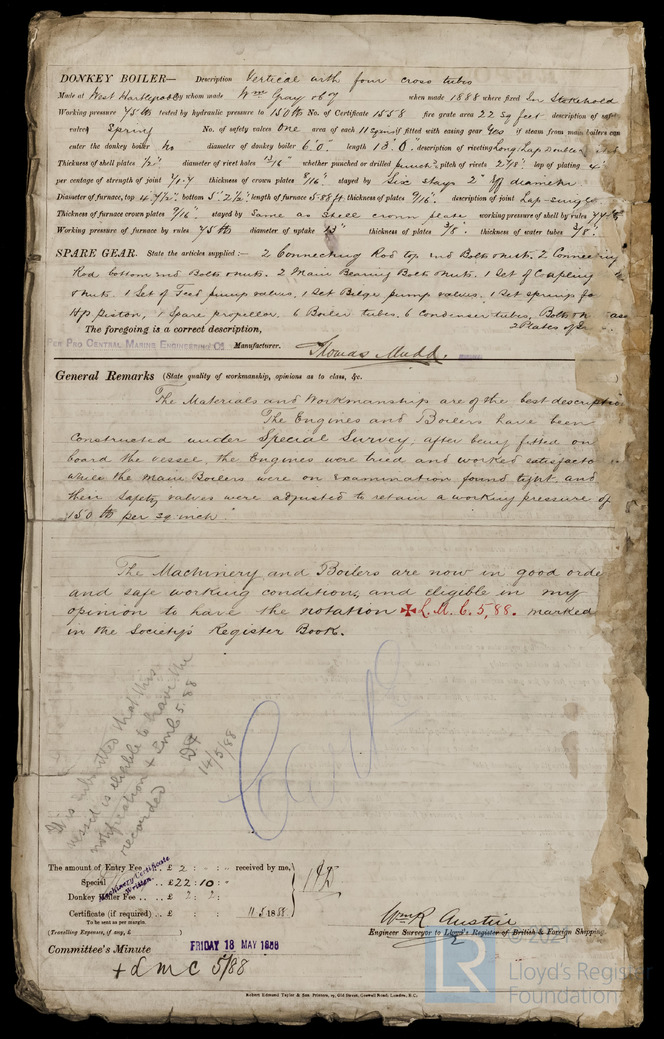 DONKEY BOILER— Description Vertical with four cross tubes
Made at West Hartlepool by whom made Wm Gray & Coy when made 1888 where fixed In Stokehold
Working pressure 75 lb tested by hydraulic pressure to 150 lb No. of Certificate 1558 fire grate area 22 Sq feet description of safety
valves Spring No. of safety valves One area of each 11 Sq in if fitted with easing gear Yes if steam from main boilers can
enter the donkey boiler No diameter of donkey boiler 6'.0" length 13'.0" description of riveting Long: Lap Double
Thickness of shell plates 1/2" diameter of rivet holes 13/16" whether punched or drilled punch pitch of rivets 2 7/8" lap of plating 4"
per centage of strength of joint thickness of crown plates 9/16" stayed by Six stays 2" diameter
Diameter of furnace, top 4'.7 1/2" bottom 5'.2 1/2" length of furnace 5.88 ft thickness of plates 9/16" description of joint Lap-single
Thickness of furnace crown plates 9/16" stayed by Same as Shell crown plate working pressure of shell by rules
Working pressure of furnace by rules 75 lb diameter of uptake 13" thickness of plates 3/8" thickness of water tubes 3/8"
SPARE GEAR. State the articles supplied:— 2 Connecting Rod top end Bolts & nuts. 2 Connecting
Rod bottom end Bolts & nuts. 2 Main Bearing Bolts & nuts. 1 Set of Coupling
& nuts. 1 Set of Feed pump valves. 1 Set Bilge pump valves. 1 Set springs fo
H.P. piston, 1 Spare propellor. 6 Boiler tubes. 6 Condenser tubes, Bolts
2 Plates of
The foregoing is a correct description,
FOR PRO CENTRAL MARINE ENGINEERING CO Manufacturer. Thomas Mudd.
General Remarks (State quality of workmanship, opinions as to class, &c. )
The Materials and Workmanship are of the best description
The Engines and Boilers have been
Constructed under Special Survey, after being fitted on
board the vessel, the Engines were tried and worked satisfacto
while the Main Boilers were on Examination found tight and
their Safety valves were adjusted to retain a working pressure of
150 lb per sq: inch.
The Machinery and Boilers are now in good orde
and safe working condition, and eligible in my
opinion to have the notation ✠ L.M.C. 5,88. marked
in the Society's Register Book.
It is submitted that this
vessel is eligible to have the
notification + LMC 5.88
recorded
14/5/88
The amount of Entry Fee .. £ 2 : : received by me,
Special .. £ 22 : 10 : -
Machinery Certificate Written
Donkey Boiler Fee .. .. £ : :
Certificate (if required) .. £ : : 11 5 1888
To be sent as per margin.
(Travelling Expenses, if any, £ )
Wm R Austin
Engineer Surveyor to Lloyd's Register of British & Foreign Shipping.
Committee's Minute FRIDAY 18 MAY 1888
+ LMC 5/88
LR
Lloyd's Register
Foundation
Robert Edmund Taylor & Son, Printers, 19, Old Street, Goswell Road, London, E.C.